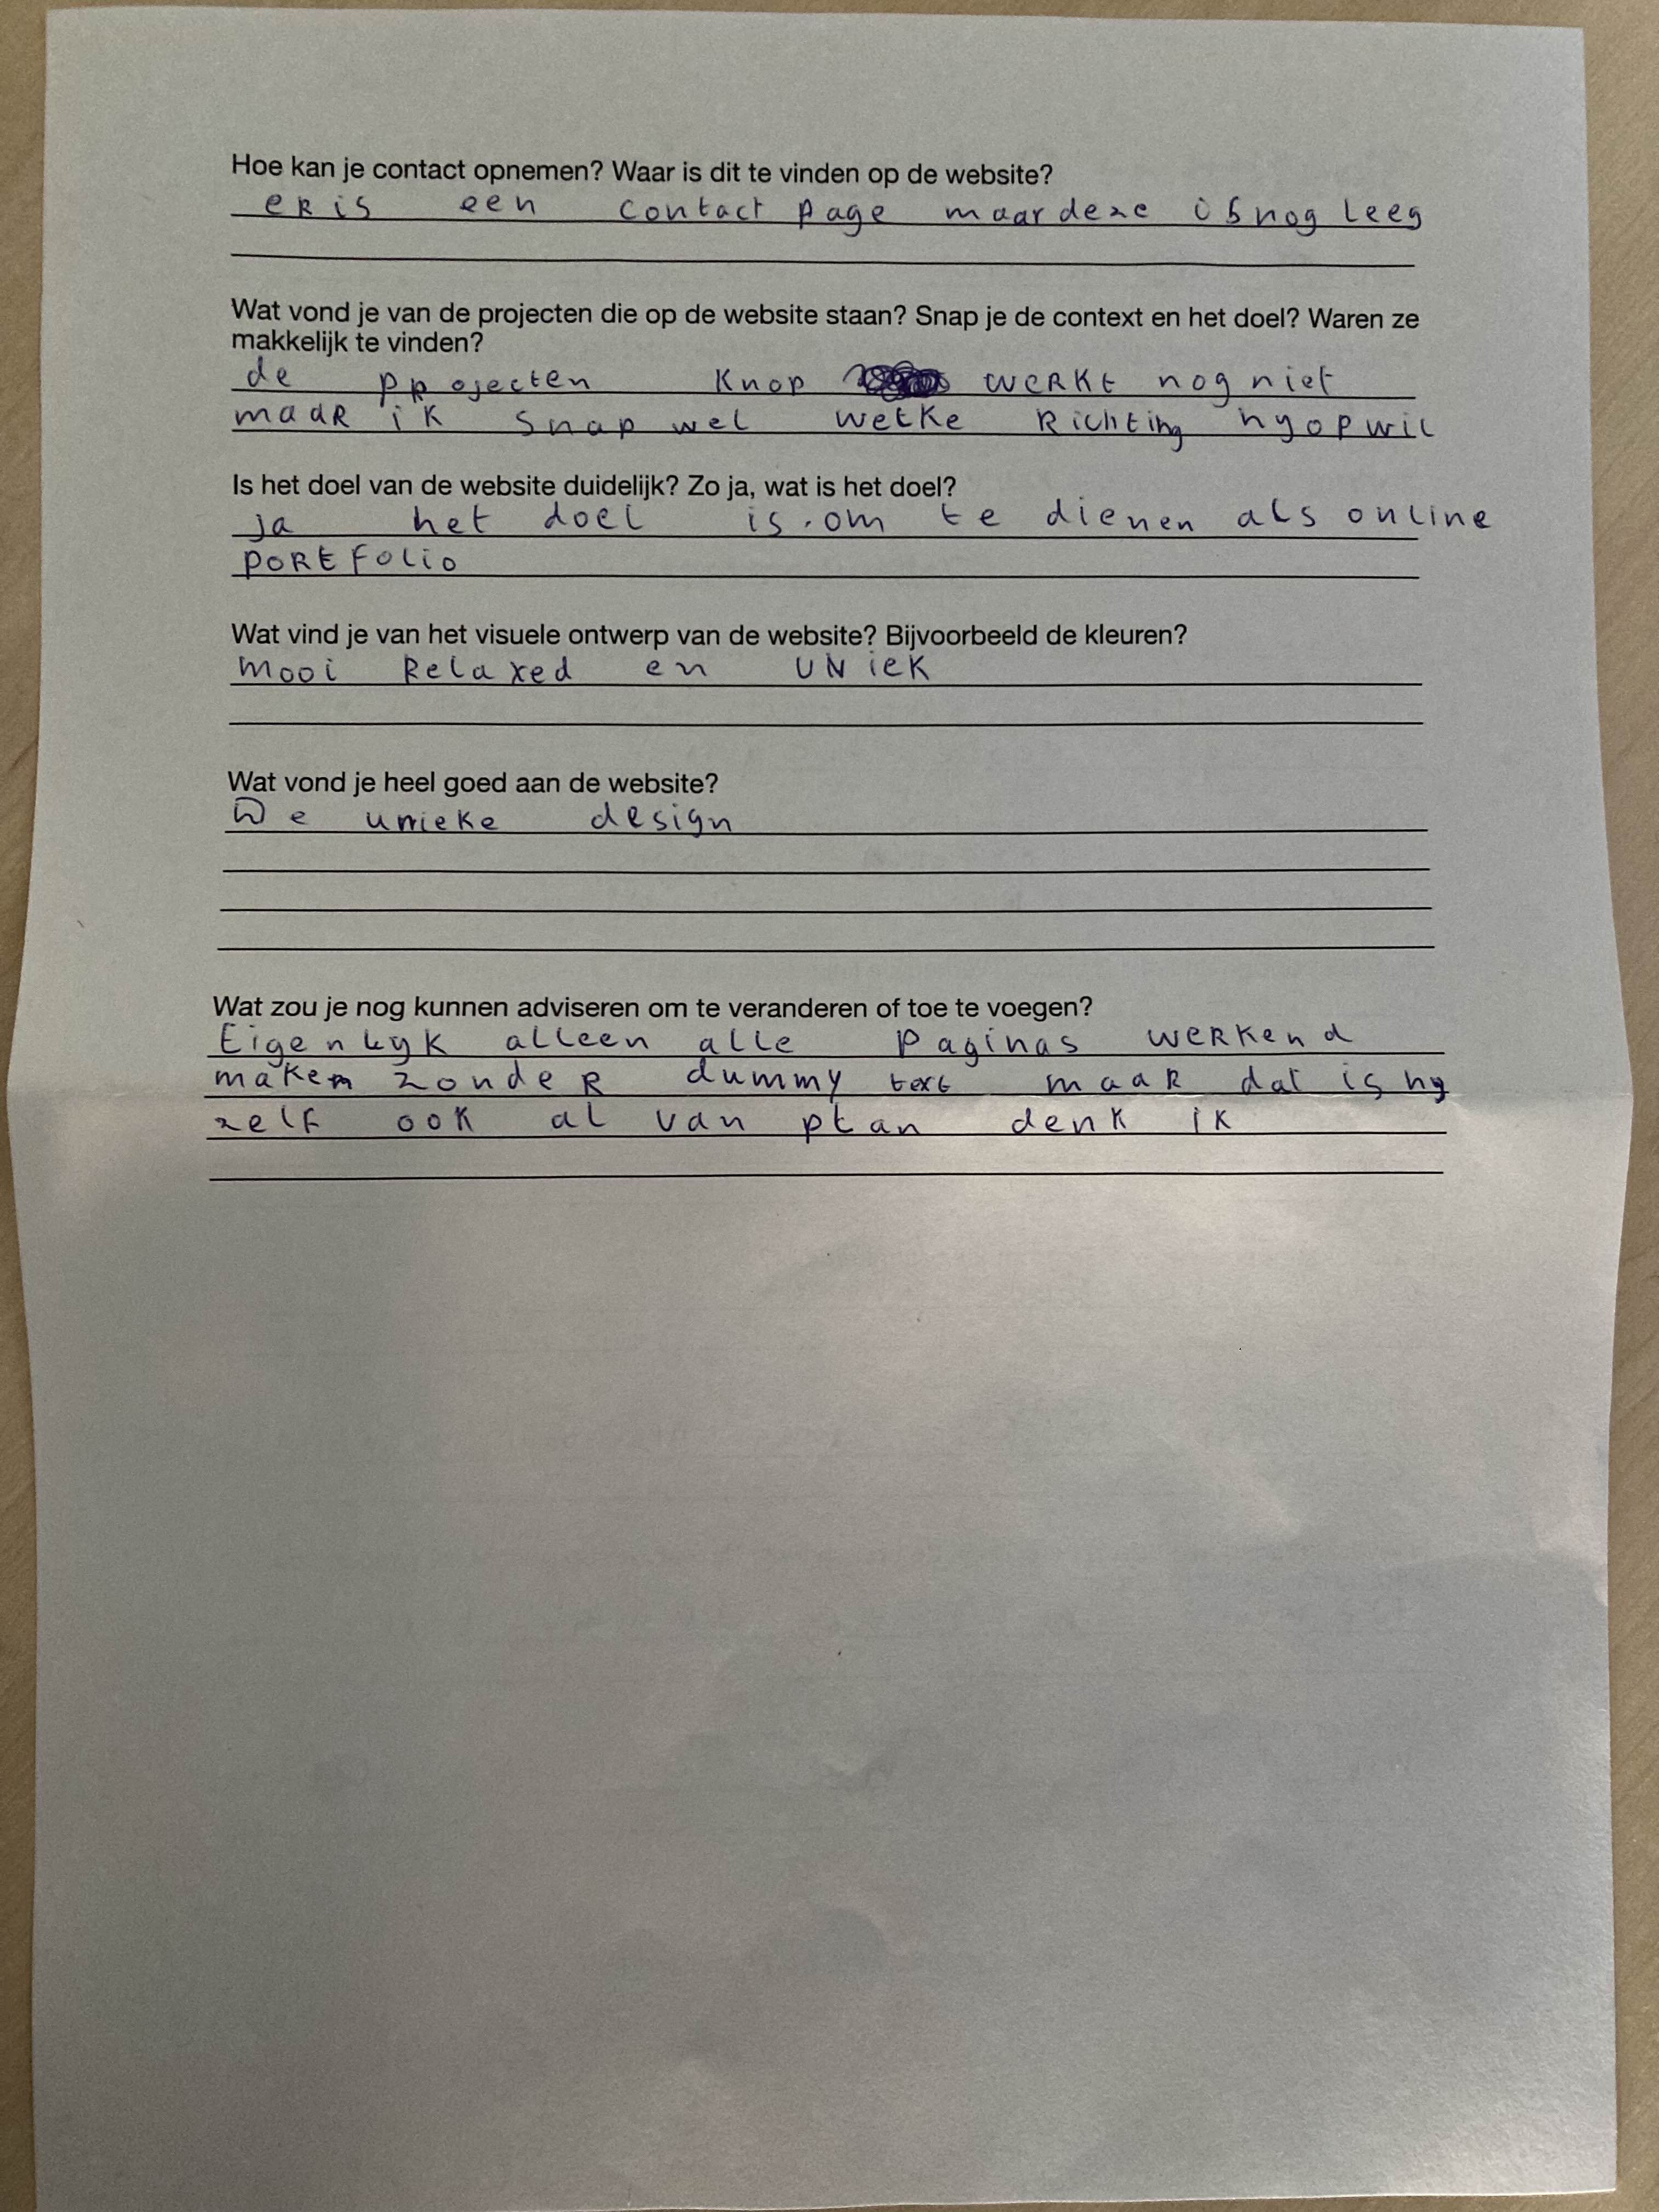 Hoe kan je contact opnemen? Waar is dit te vinden op de website?
er is een contact page maar deze is nog leeg
Wat vond je van de projecten die op de website staan? Snap je de context en het doel? Waren ze
makkelijk te vinden?
de projecten knop werkt nog niet
maar ik snap wel welke richting hy op wil
Is het doel van de website duidelijk? Zo ja, wat is het doel?
ja het doel is om te dienen als online
portfolio
Wat vind je van het visuele ontwerp van de website? Bijvoorbeeld de kleuren?
mooi relaxed en uniek
Wat vond je heel goed aan de website?
De unieke design
Wat zou je nog kunnen adviseren om te veranderen of toe te voegen?
Eigenlyk alleen alle paginas werkend
maken zonder dummy text maar dat is hy
zelf ook al van plan denk ik